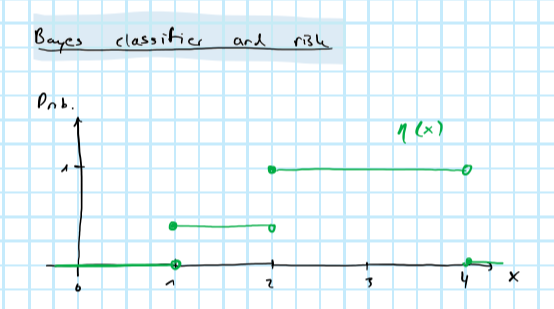 Bayes classifier and risk
Prob.
η(x)
1
0 1 2 3 4 x